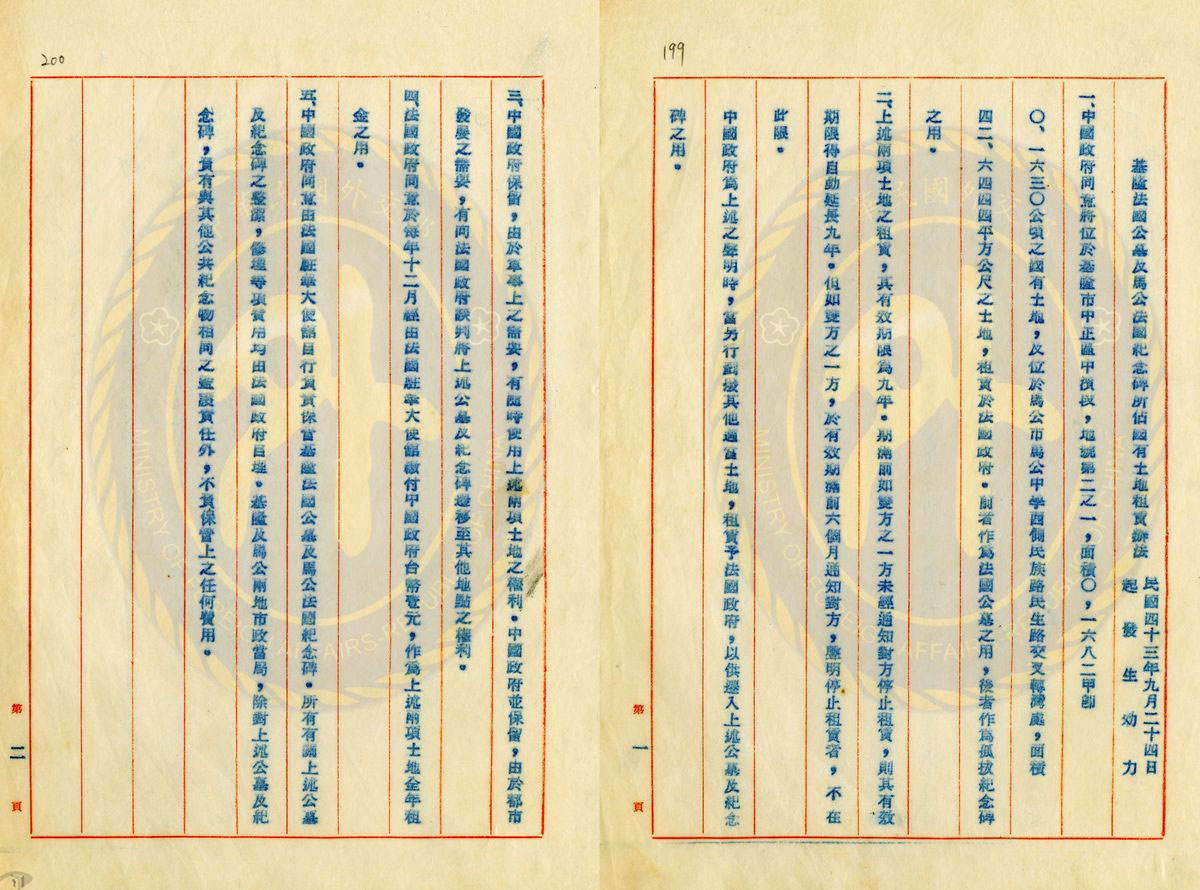 199
基隆法國公墓及馬公法國紀念碑所佔國有土地租賃辦法
民國四十三年九月二十四日
起發生効力
一、中國政府同意將位於基隆市中正區中濱段，地號第二之一，面積〇、一六八二甲卽
〇、一六三〇公頃之國有土地，及位於馬公市馬公中學西側民族路民生路交叉轉灣處，面積
四二、六四四四平方公尺之土地，租賃於法國政府。前者作爲法國公墓之用，後者作爲孤拔紀念碑
之用。
二、上述兩項土地之租賃，其有效期限爲九年。期滿前如雙方之一方未經通知對方停止租賃，則其有效
期限得自動延長九年。但如雙方之一方，於有效期滿前六個月通知對方，聲明停止租賃者，不在
此限。
中國政府爲上述之聲明時，當另行劃撥其他適當土地，租賃予法國政府，以供遷入上述公墓及紀念
碑之用。
第一頁
200
三、中國政府保留，由於軍事上之需要，有隨時使用上述兩項土地之權利。中國政府並保留，由於都市
發展之需要，有向法國政府談判將上述公墓及紀念碑遷移至其他地點之權利。
四、法國政府同意於每年十二月經由法國駐華大使館繳付中國政府台幣壹元，作爲上述兩項土地全年租
金之用。
五、中國政府同意由法國駐華大使館自行負責保管基隆法國公墓及馬公法國紀念碑。所有有關上述公墓
及紀念碑之整潔，修理等項費用均由法國政府自理。基隆及馬公兩地市政當局，除對上述公墓及紀
念碑，負有與其他公共紀念物相同之監護責任外，不負保管上之任何費用。
第二頁
中華民國外交部
MINISTRY OF FOREIGN AFFAIRS REPUBLIC OF CHINA